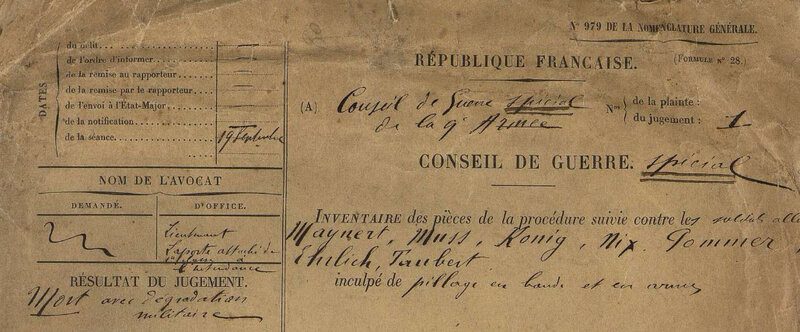 N° 979 DE LA NOMENCLATURE GÉNÉRALE.
DATES
du délit
de l'ordre d'informer
de la remise au rapporteur
de la remise par le rapporteur
de l'envoi à l'État-Major
de la notification
de la séance. 19 Septembre
NOM DE L'AVOCAT
DEMANDÉ. D'OFFICE.
Lieutenant
Laporte attaché de
l'Intendance
RÉSULTAT DU JUGEMENT.
Mort avec dégradation
militaire
RÉPUBLIQUE FRANÇAISE. (FORMULE N° 28.)
(A) Conseil de Guerre spécial
de la 9e Armée
Nos de la plainte :
du jugement : 1
CONSEIL DE GUERRE. spécial
INVENTAIRE des pièces de la procédure suivie contre les soldats
Maynert, Muss, König, Nix, Pommer,
Ehrlich, Taubert
inculpé de pillage en bande et en armes